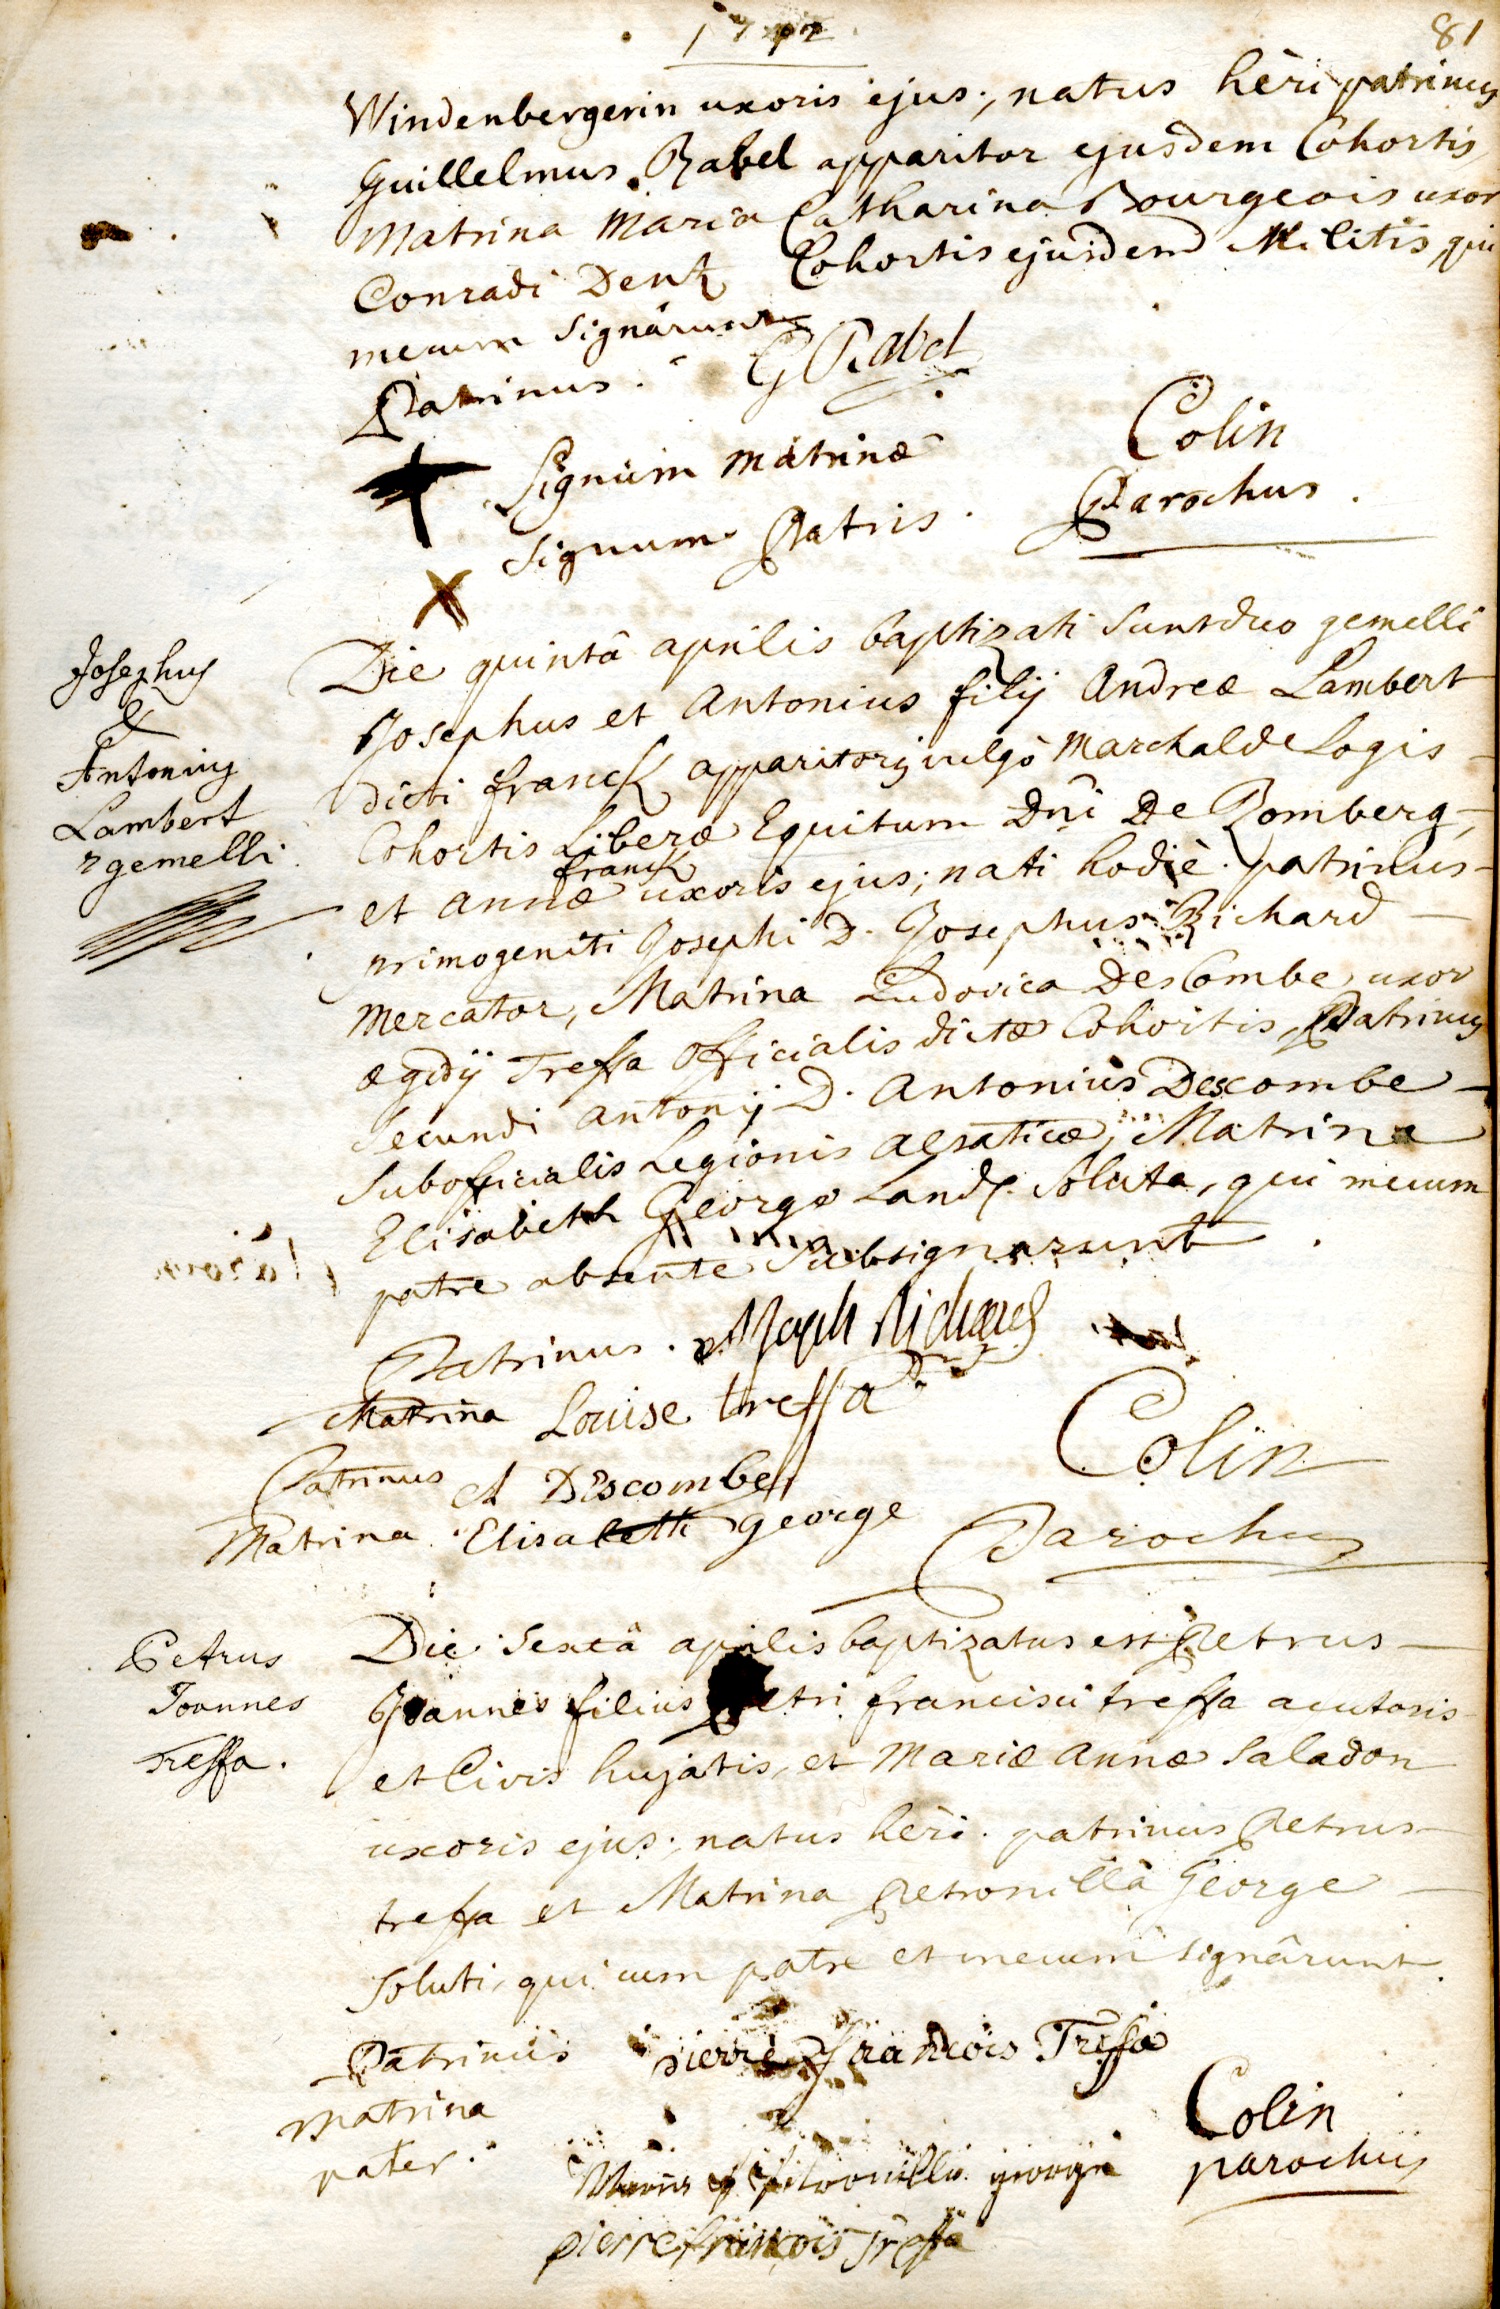 81
Windenbergerin uxoris ejus; natus hèri patrinus
Guillelmus Rabel apparitor ejusdem Cohortis,
Matrina Maria Catharina Bourgeois uxor
Conradi Dentz Cohortis ejusdem Militis, qui
mecum signârunt
Patrinus. G Rabel
Signum matrinæ
Colin
Signum Patris.
Parochus.
Josephus
&
Antonius
Lambert
2 gemelli
Die quintâ aprilis baptizati sunt duo gemelli
Josephus et Antonius filij Andreæ Lambert
dicti franck apparitoris vulgò Marchal de Logis
Cohortis Liberæ Equitum Dni De Romberg,
et annæ franck uxoris ejus; nati hodiè. patrinus
primogeniti Josephi D. Josephus Richard
Mercator, Matrina Ludovica Des Combe uxor
ægidij Treffa officialis dictæ Cohortis, Patrinus
secundi antonij D. Antonius Descombe
subofficialis Legionis alsaticæ, Matrina
Elisabeth George Land. soluta, qui mecum
patre absente subsignarunt.
Patrinus. Joseph Richard
Matrina Louise treffa
Patrinus A Descombe
Colin
Matrina Elisabeth George
Parochus
Petrus
Joannes
Treffa.
Die sextâ aprilis baptizatus est Petrus
Joannes filius Petri francisci treffa acutoris
et Civis hujatis, et Mariæ annæ Saladon
uxoris ejus; natus hèri. patrinus Petrus
treffa et Matrina Petronilla George
soluti, qui cum patre et mecum signârunt.
Patrinus pierre François Treffa
Matrina
Colin
pater.
parochus
pierre françois Treffa